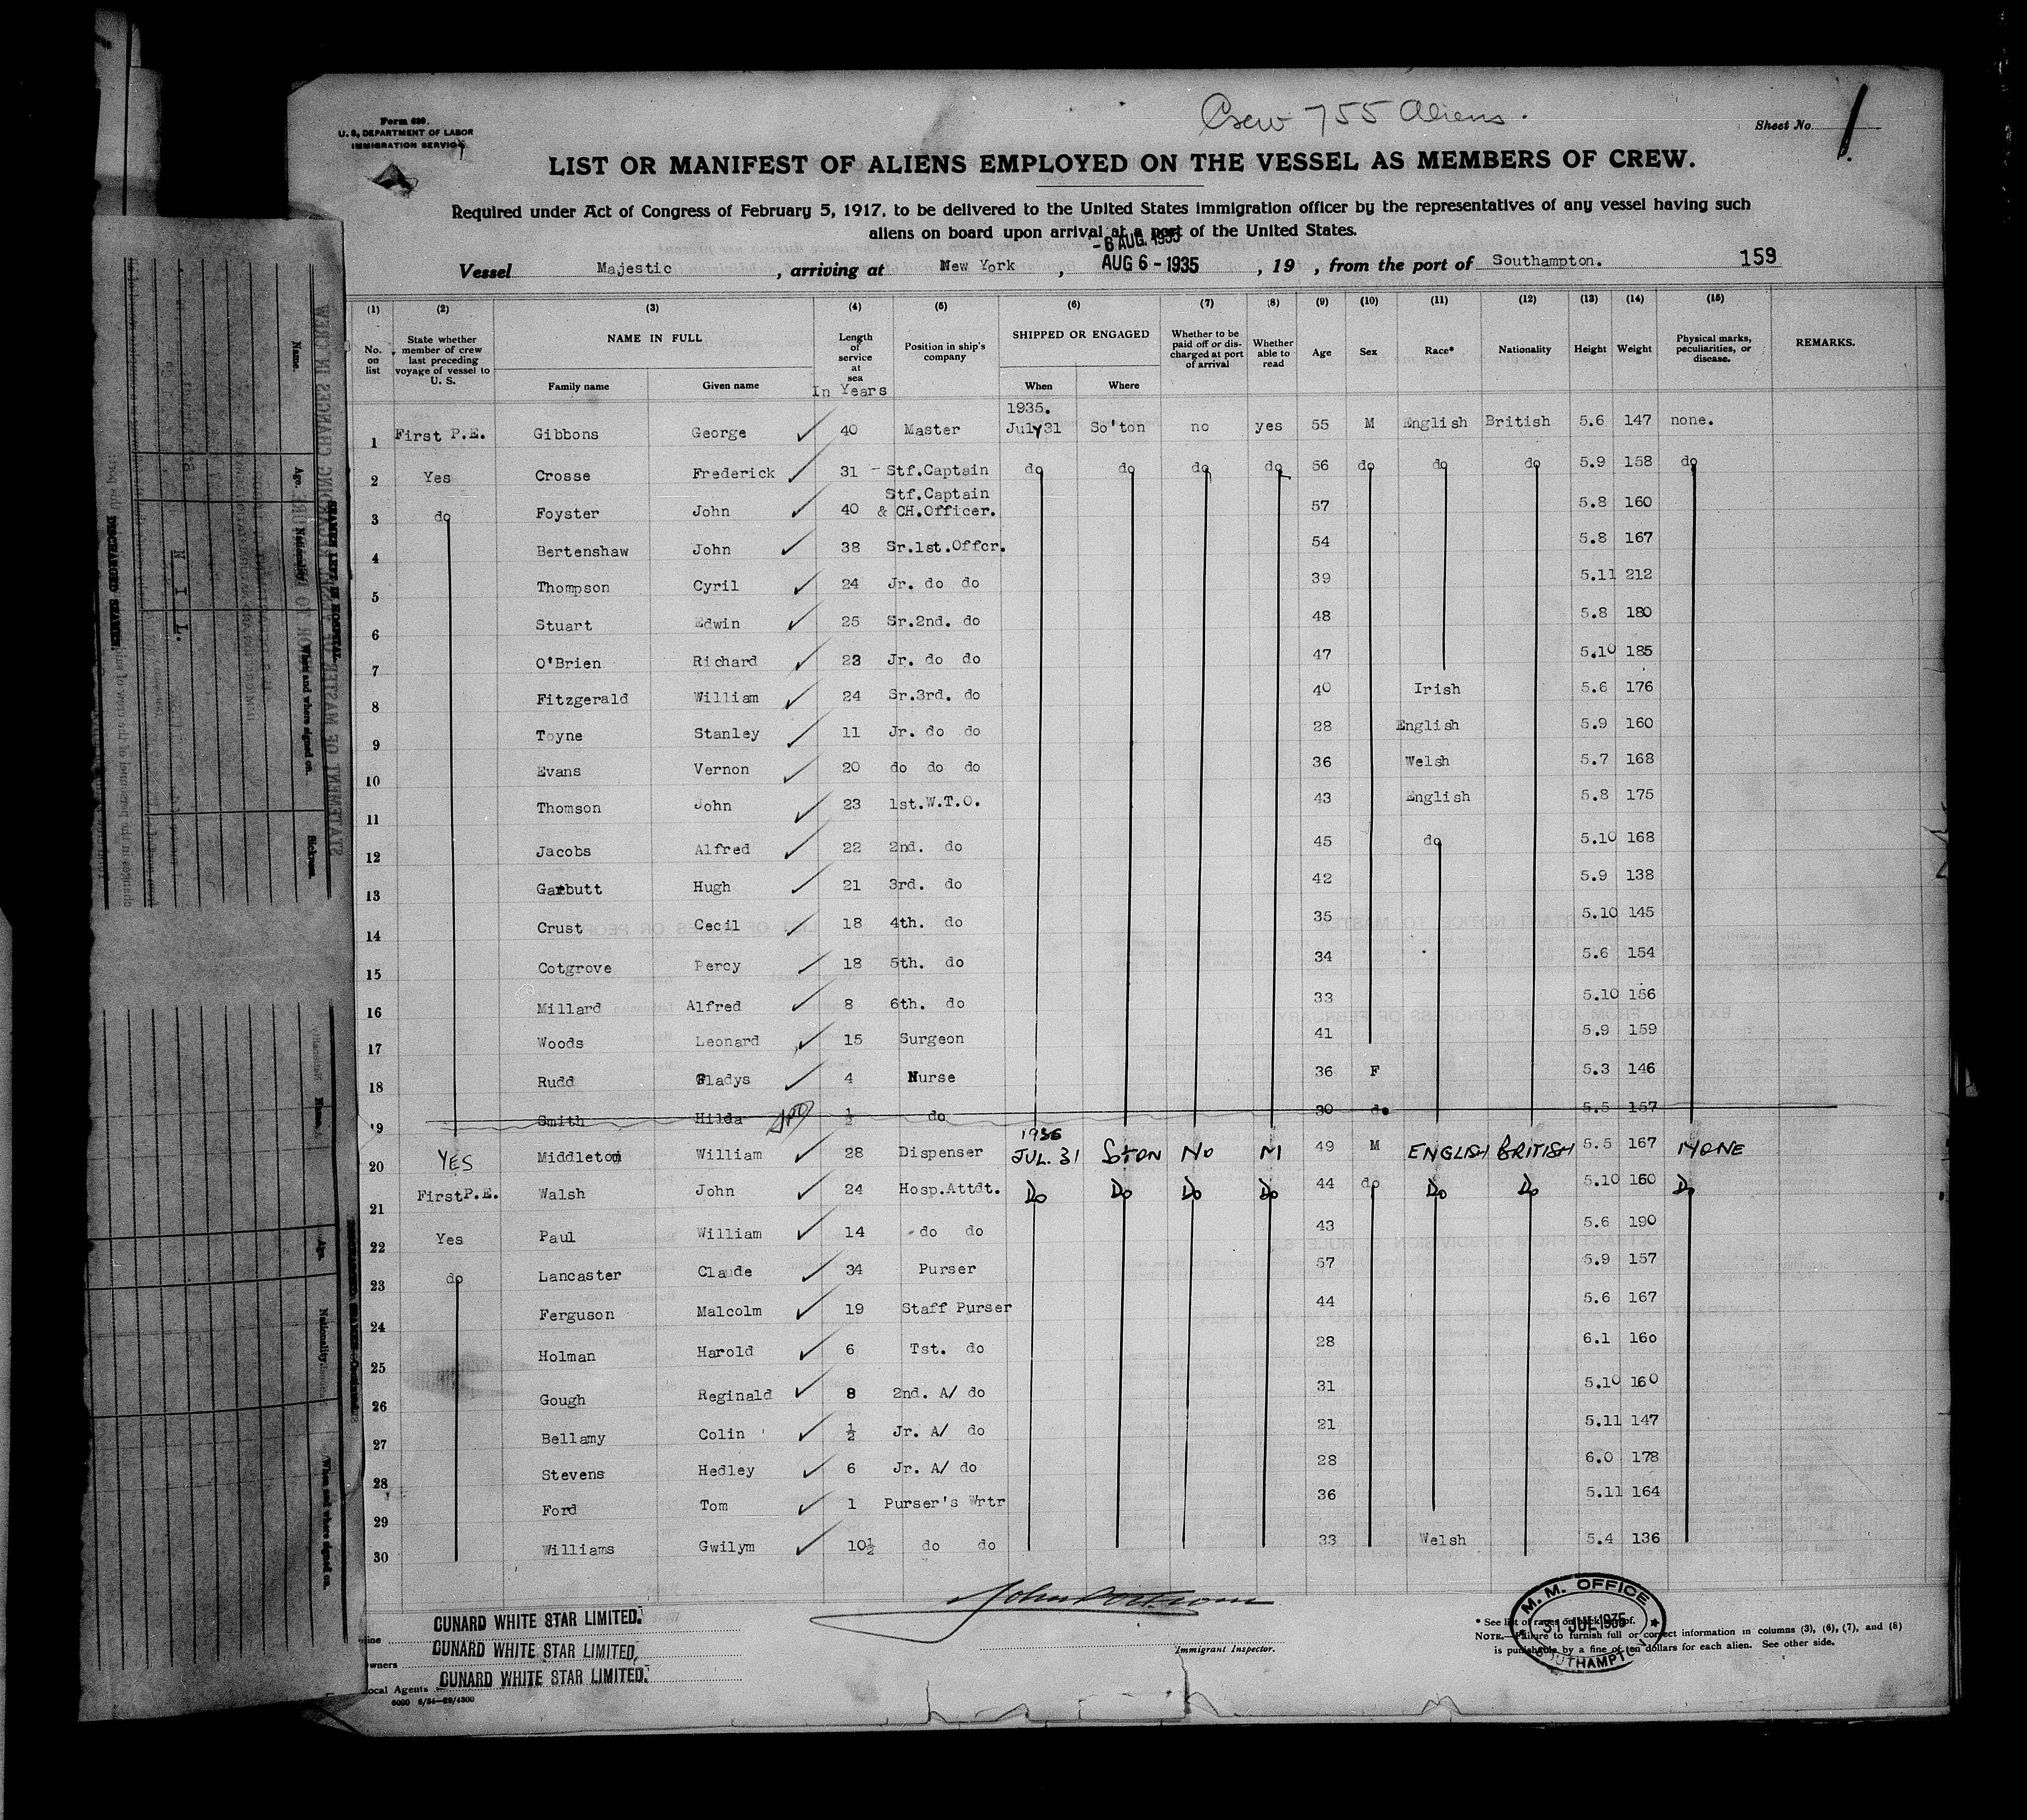 Crew 755 Aliens.
Form 680.
U. S. DEPARTMENT OF LABOR
IMMIGRATION SERVICE
Sheet No. 1
LIST OR MANIFEST OF ALIENS EMPLOYED ON THE VESSEL AS MEMBERS OF CREW.
Required under Act of Congress of February 5, 1917, to be delivered to the United States immigration officer by the representatives of any vessel having such
aliens on board upon arrival at a port of the United States.
- 6 AUG. 1935
Vessel Majestic, arriving at New York, AUG 6 - 1935, 19 , from the port of Southampton. 159
(1) (2) (3) (4) (5) (6) (7) (8) (9) (10) (11) (12) (13) (14) (15)
No. on list
State whether member of crew last preceding voyage of vessel to U. S.
NAME IN FULL
Family name Given name
Length of service at sea
In Years
Position in ship's company
SHIPPED OR ENGAGED
When Where
Whether to be paid off or discharged at port of arrival
Whether able to read
Age Sex Race* Nationality Height Weight
Physical marks, peculiarities, or disease.
REMARKS.
1935.
1 First P.E. Gibbons George 40 Master July 31 So'ton no yes 55 M English British 5.6 147 none.
2 Yes Crosse Frederick 31 - Stf.Captain do do do do 56 do do do 5.9 158 do
3 do Foyster John 40 Stf.Captain & CH.Officer. 57 5.8 160
4 Bertenshaw John 38 Sr.1st.Offcr. 54 5.8 167
5 Thompson Cyril 24 Jr. do do 39 5.11 212
6 Stuart Edwin 25 Sr.2nd. do 48 5.8 180
7 O'Brien Richard 23 Jr. do do 47 5.10 185
8 Fitzgerald William 24 Sr.3rd. do 40 Irish 5.6 176
9 Toyne Stanley 11 Jr. do do 28 English 5.9 160
10 Evans Vernon 20 do do do 36 Welsh 5.7 168
11 Thomson John 23 1st.W.T.O. 43 English 5.8 175
12 Jacobs Alfred 22 2nd. do 45 do 5.10 168
13 Garbutt Hugh 21 3rd. do 42 5.9 138
14 Crust Cecil 18 4th. do 35 5.10 145
15 Cotgrove Percy 18 5th. do 34 5.6 154
16 Millard Alfred 8 6th. do 33 5.10 156
17 Woods Leonard 15 Surgeon 41 5.9 159
18 Rudd Gladys 4 Nurse 36 F 5.3 146
19 Smith Hilda ½ do 30 do 5.5 157
1935
20 YES Middleton William 28 Dispenser JUL. 31 SOTON NO 49 M ENGLISH BRITISH 5.5 167 NONE
21 First P.E. Walsh John 24 Hosp.Attdt. Do Do Do Do 44 do Do Do 5.10 160 Do
22 Yes Paul William 14 do do 43 5.6 190
23 do Lancaster Claude 34 Purser 57 5.9 157
24 Ferguson Malcolm 19 Staff Purser 44 5.6 167
25 Holman Harold 6 Tst. do 28 6.1 160
26 Gough Reginald 8 2nd. A/ do 31 5.10 160
27 Bellamy Colin ½ Jr. A/ do 21 5.11 147
28 Stevens Hedley 6 Jr. A/ do 28 6.0 178
29 Ford Tom 1 Purser's Wrtr 36 5.11 164
30 Williams Gwilym 10½ do do 33 Welsh 5.4 136
CUNARD WHITE STAR LIMITED.
Owners CUNARD WHITE STAR LIMITED.
Local Agents CUNARD WHITE STAR LIMITED.
Immigrant Inspector.
M. M. OFFICE
31 JUL 1935
SOUTHAMPTON
* See list of races on back hereof.
NOTE.—Failure to furnish full or correct information in columns (3), (6), (7), and (8)
is punishable by a fine of ten dollars for each alien. See other side.
Name.
Age.
Nationality
When and where signed on.
Sickness.
N I L.
DISCHARGED SEAMEN.
Name.
Age.
Nationality.
When and where signed on.